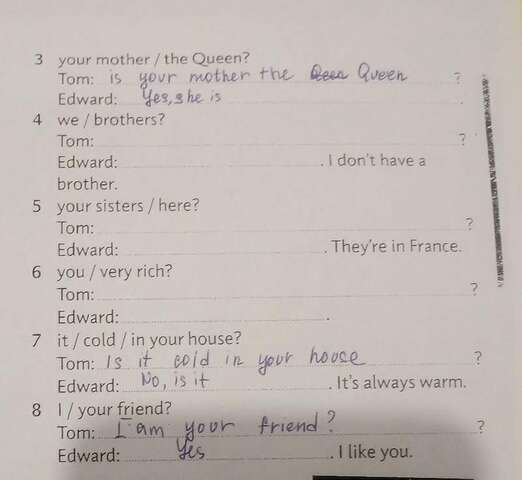 3 your mother / the Queen?
Tom: is your mother the Queen ?
Edward: Yes, she is .
4 we / brothers?
Tom: ?
Edward: . I don't have a
brother.
5 your sisters / here?
Tom: ?
Edward: . They're in France.
6 you / very rich?
Tom: ?
Edward: .
7 it / cold / in your house?
Tom: Is it cold in your hooce ?
Edward: No, is it . It's always warm.
8 I / your friend?
Tom: I am your friend? ?
Edward: Yes . I like you.